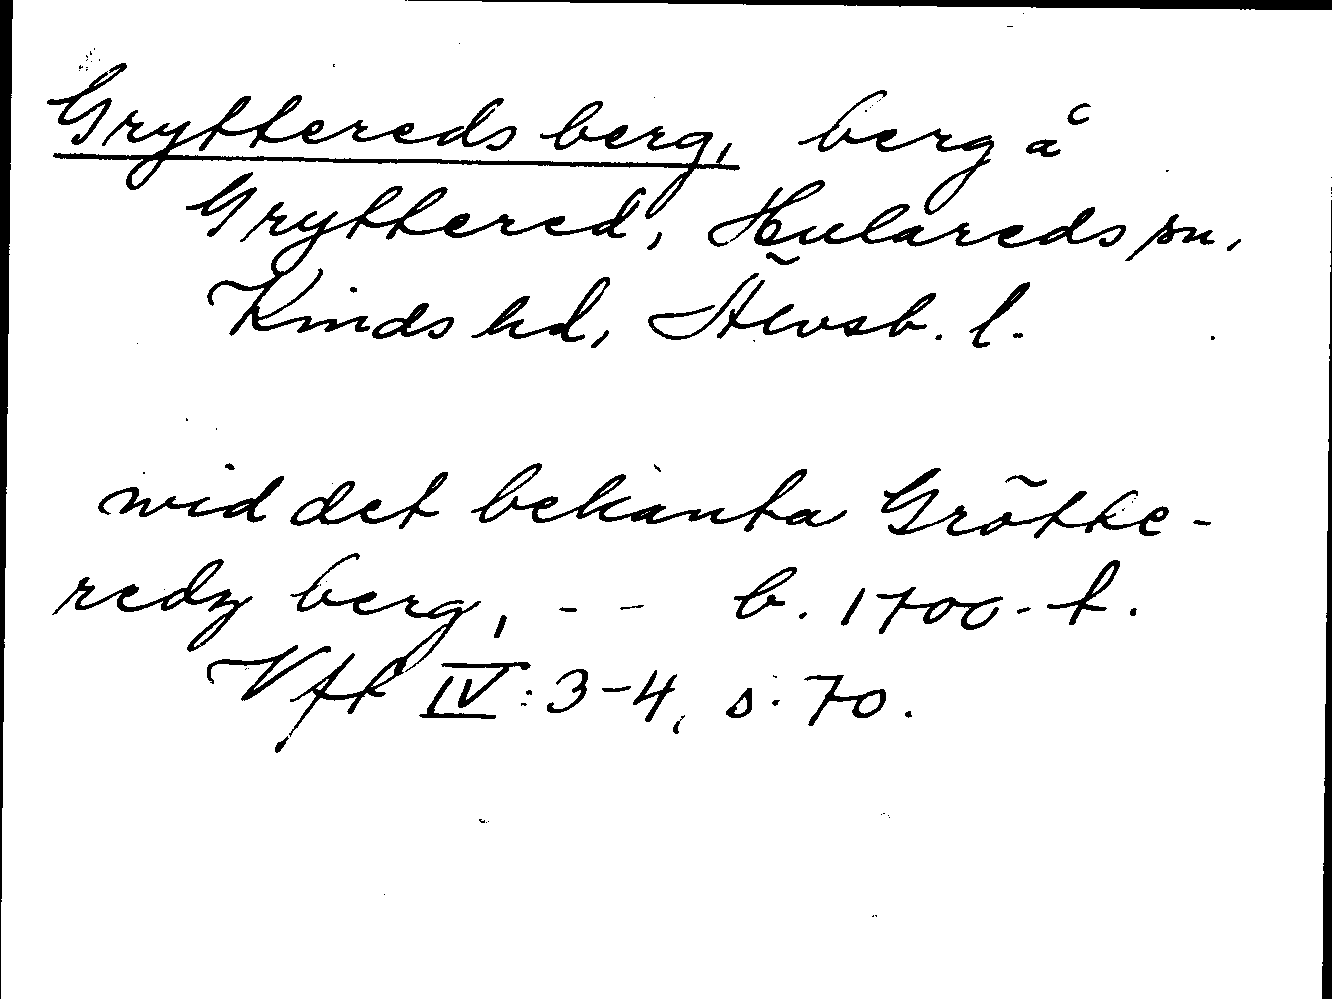 Gryttereds berg, berg å
Gryttered, Hulareds sn,
Kinds hd, Älvsb. l.
wid det bekanta Grötte-
redz berg, - - b. 1700-t.
Vft IV: 3-4, s. 70.